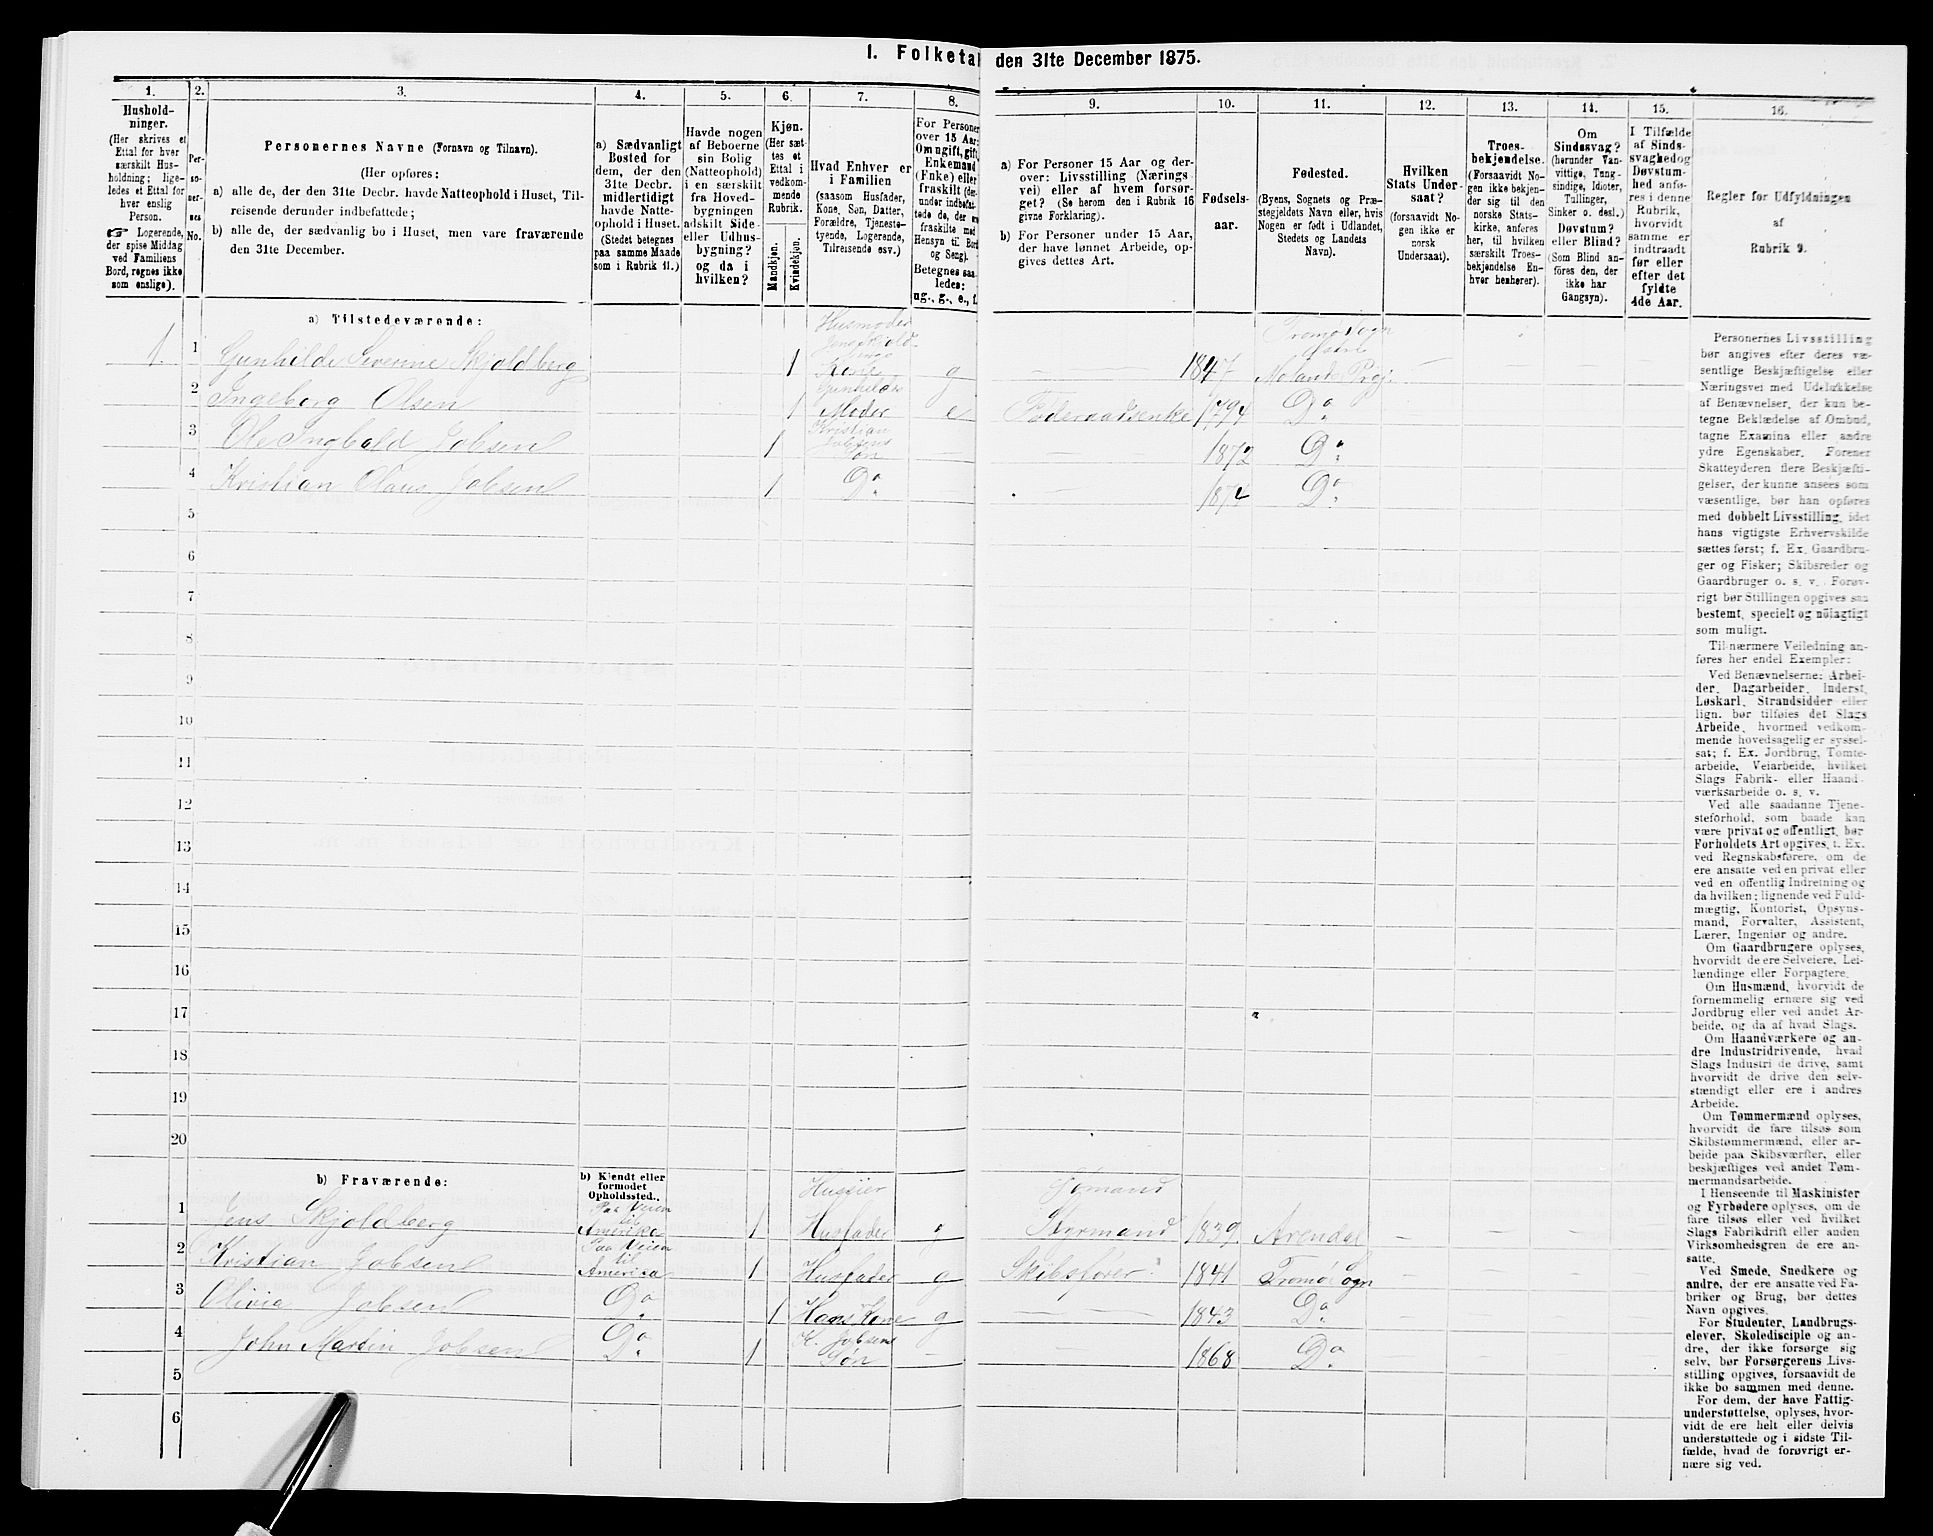 I. Folketal den 31te December 1875.
1.
Hushold-
ninger.
(Her skrives et
Ettal for hver
særskilt Hus-
holdning; lige-
ledes et Ettal for
hver enslig
Person.
Logerende,
der spise Middag
ved Familiens
Bord, regnes ikke
som enslige).
2.
Per-
so-
ner-
nes
No.
3.
Personernes Navne (Fornavn og Tilnavn).
(Her opføres:
a) alle de, der den 31te Decbr. havde Natteophold i Huset, Til-
reisende derunder indbefattede;
b) alle de, der sædvanlig bo i Huset, men vare fraværende
den 31te December.
4.
a) Sædvanligt
Bosted for
dem, der den
31te Decbr.
midlertidigt
havde Natte-
ophold i Huset.
(Stedet betegnes
paa samme Maade
som i Rubrik 11.)
5.
Havde nogen
af Beboerne
sin Bolig
(Natteophold)
i en særskilt
fra Hoved-
bygningen
adskilt Side-
eller Udhus-
bygning?
og da i
hvilken?
6.
Kjøn.
(Her sæt-
tes et
Ettal i
vedkom-
mende
Rubrik.
Mandkjøn.
Kvindekjøn.
7.
Hvad Enhver er
i Familien
(saasom Husfader,
Kone, Søn, Datter,
Forældre, Tjeneste-
tyende, Logerende,
Tilreisende osv.)
8.
For Personer
over 15 Aar:
Om ugift, gift,
Enkemand
(Enke) eller
fraskilt (der-
under indbefat-
tede de, der ere
fraskilte med
Hensyn til Bord
og Seng).
Betegnes saa-
ledes:
ug., g., e., f.
9.
a) For Personer 15 Aar og der-
over: Livsstilling (Nærings-
vei) eller af hvem forsør-
get? (Se herom den i Rubrik 16
givne Forklaring).
b) For Personer under 15 Aar,
der have lønnet Arbeide, op-
gives dettes Art.
10.
Fødsels-
aar.
11.
Fødested.
(Byens, Sognets og Præ-
stegjeldets Navn eller, hvis
Nogen er født i Udlandet,
Stedets og Landets
Navn).
12.
Hvilken
Stats Under-
saat?
(forsaavidt No-
gen ikke er
norsk
Undersaat).
13.
Troes-
bekjendelse.
(Forsaavidt No-
gen ikke bekjen-
der sig til den
norske Stats-
kirke, anføres
her, til hvilken
særskilt Troes-
bekjendelse En-
hver henhører).
14.
Om
Sindssvag?
(herunder Van-
vittige, Tung-
sindige, Idioter,
Tullinger,
Sinker o. desl.)
Døvstum?
eller Blind?
(Som Blind an-
føres den, der
ikke har
Gangsyn).
15.
I Tilfælde
af Sinds-
svaghed og
Døvstum-
hed anfø-
res i denne
Rubrik,
hvorvidt
samme er
indtraadt
før eller
efter det
fyldte
4de Aar.
16.
Regler for Udfyldningen
af
Rubrik 9.
a) Tilstedeværende:
1. 1 Gunhilde Severine Skjoldberg 1 Husmoder Jens Skjoldbergs Kone g — 1847 Tromø Sogn Østre Molands Prgj. — — —
2 Ingeborg Olsen 1 Gunhildes Moder e Føderaadsenke 1794 Do
3 Ole Ingbald Jobsen 1 Kristian Jobsens Søn — — 1872 Do
4 Kristian Olaus Jobsen 1 Do — — 1874 Do
5
6
7
8
9
10
11
12
13
14
15
16
17
18
19
20
b) Fraværende:
b) Kjendt eller
formodet
Opholdssted.
1 Jens Skjoldberg Paa Veien til Amerika 1 Husfader g Sømand Styrmand 1839 Arendal — — —
2 Kristian Jobsen Paa Veien til Amerika 1 Husfader g Skibsfører 1841 Tromø Sogn — — —
3 Olivia Jobsen Do 1 Hans Kone g — 1843 Do — — —
4 John Martin Jobsen Do 1 K. Jobsens Søn — — 1868 Do — — —
5
6
Personernes Livsstilling
bør angives efter deres væ-
sentlige Beskjæftigelse eller
Næringsvei med Udelukkelse
af Benævnelser, der kun be-
tegne Beklædelse af Ombud,
tagne Examina eller andre
ydre Egenskaber. Forener
Skatteyderen flere Beskjæfti-
gelser, der kunne ansees som
væsentlige, bør han opføres
med dobbelt Livsstilling, idet
hans vigtigste Erhvervskilde
sættes først; f. Ex. Gaardbru-
ger og Fisker; Skibsreder og
Gaardbruger o. s. v. Forøv-
rigt bør Stillingen opgives saa
bestemt, specielt og nöiagtigt
som muligt.
Til nærmere Veiledning an-
føres her endel Exempler:
Ved Benævnelserne: Arbei-
der, Dagarbeider, Inderst,
Løskarl, Strandsidder eller
lign. bør tilføies det Slags
Arbeide, hvormed vedkom-
mende hovedsagelig er syssel-
sat; f. Ex. Jordbrug, Tomte-
arbeide, Veiarbeide, hvilket
Slags Fabrik- eller Haand-
værksarbeide o. s. v.
Ved alle saadanne Tjene-
steforhold, som baade kan
være privat og offentligt, bør
Forholdets Art opgives, f. Ex.
ved Regnskabsførere, om de
ere ansatte ved en privat eller
ved en offentlig Indretning og
da hvilken; lignende ved Fuld-
mægtig, Kontorist, Opsyns-
mand, Forvalter, Assistent,
Lærer, Ingeniør og andre.
Om Gaardbrugere oplyses,
hvorvidt de ere Selveiere, Lei-
lændinge eller Forpagtere.
Om Husmænd, hvorvidt de
fornemmelig ernære sig ved
Jordbrug eller ved andet Ar-
beide, og da af hvad Slags.
Om Haandværkere og an-
dre Industridrivende, hvad
Slags Industri de drive, samt
hvorvidt de drive den selv-
stændigt eller ere i andres
Arbeide.
Om Tømmermænd oplyses,
hvorvidt de fare tilsøs som
Skibstømmermænd, eller ar-
beide paa Skibsværfter, eller
beskjæftiges ved andet Tøm-
mermandsarbeide.
I Henseende til Maskinister
og Fyrbødere oplyses, om de
fare tilsøs eller ved hvilket
Slags Fabrikdrift eller anden
Virksomhedsgren de ere an-
satte.
Ved Smede, Snedkere og
andre, der ere ansatte ved Fa-
briker og Brug, bør dettes
Navn opgives.
For Studenter, Landbrugs-
elever, Skoledisciple og an-
dre, der ikke forsørge sig
selv, bør Forsørgerens Livs-
stilling opgives, forsaavidt de
ikke bo sammen med denne.
For dem, der have Fattig-
understøttelse, oplyses, hvor-
vidt de ere helt eller delvis
understøttede og i sidste Til-
fælde, hvad de forøvrigt er-
nære sig ved.